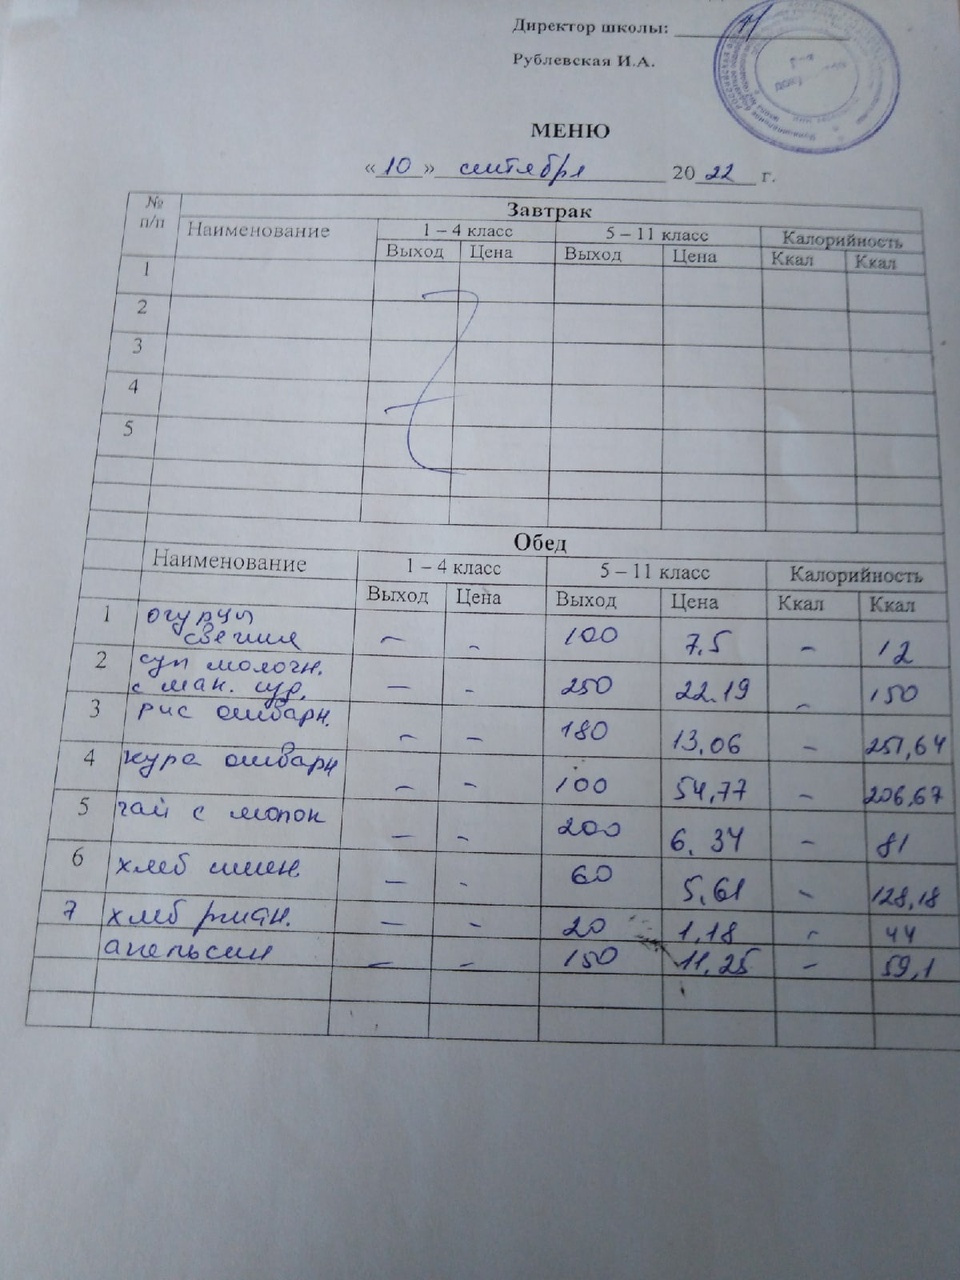 Директор школы:
Рублевская И.А.
МЕНЮ
« 10 » сентября 20 22 г.
№ п/п Завтрак
Наименование 1 – 4 класс 5 – 11 класс Калорийность
Выход Цена Выход Цена Ккал Ккал
1
2
3
4
5
Обед
Наименование 1 – 4 класс 5 – 11 класс Калорийность
Выход Цена Выход Цена Ккал Ккал
1 огурцы
свежие – – 100 7.5 – 12
2 суп молочн.
с ман. кр. – – 250 22.19 – 150
3 рис отварн. – – 180 13,06 – 251,64
4 кура отварн – – 100 54,77 – 206,67
5 чай с молок – – 200 6.34 – 81
6 хлеб пшен. – – 60 5,61 – 128,18
7 хлеб ржан. – – 20 1,18 – 44
апельсин – – 150 11,25 – 59,1